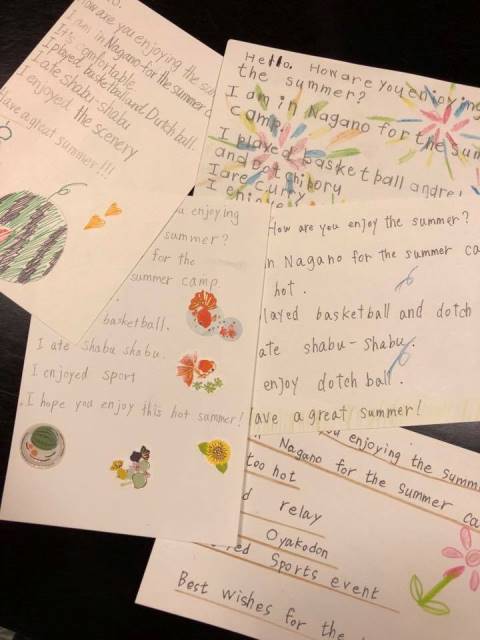 How are you enjoying the su
I am in Nagano for the summer c
It's comfortable.
I played basketball and Dutch ball.
I ate shabu-shabu
I enjoyed the scenery
Have a great summer!!!
Hello. How are you enjoying
the summer?
I am in Nagano for the sum
camp.
I played basketball and re
and botchibory
I are curry
I enjoye
u enjoying
summer?
for the
summer camp.
basketball.
I ate shabu shabu.
I enjoyed sport
I hope you enjoy this hot summer!
How are you enjoy the summer?
n Nagano for the summer ca
hot.
layed basketball and dotch
ate shabu-shabu.
enjoy dotch ball.
ave a great summer!
ou enjoying the summ
Nagano for the summer ca
too hot
d relay
Oyakodon
ed Sports event
Best wishes for the